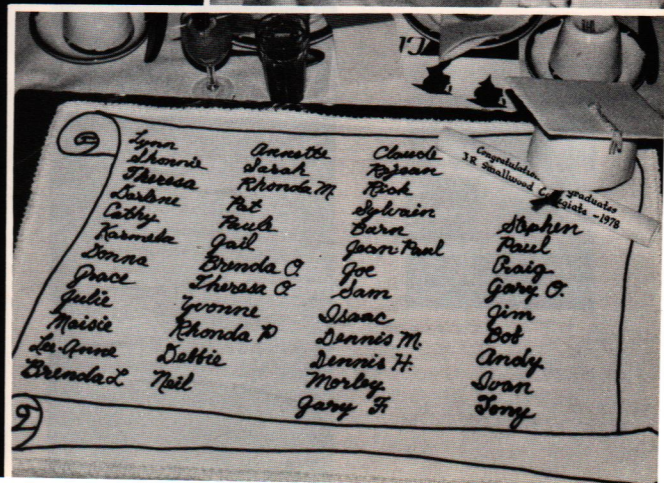 Lynn
Shonnie
Theresa
Darlene
Cathy
Karmela
Donna
Grace
Julie
Maisie
Lee-Anne
Brenda L
Annette
Sarah
Rhonda M.
Pat
Paula
Gail
Brenda O.
Theresa O.
Yvonne
Rhonda P
Debbie
Neil
Claude
Rick
Sylvain
Barn
Jean Paul
Joe
Sam
Isaac
Dennis M.
Dennis H.
Morley
Gary F.
Stephen
Paul
Craig
Gary O.
Jim
Bob
Andy
Ivan
Tony
graduates
J.R. Smallwood -1978